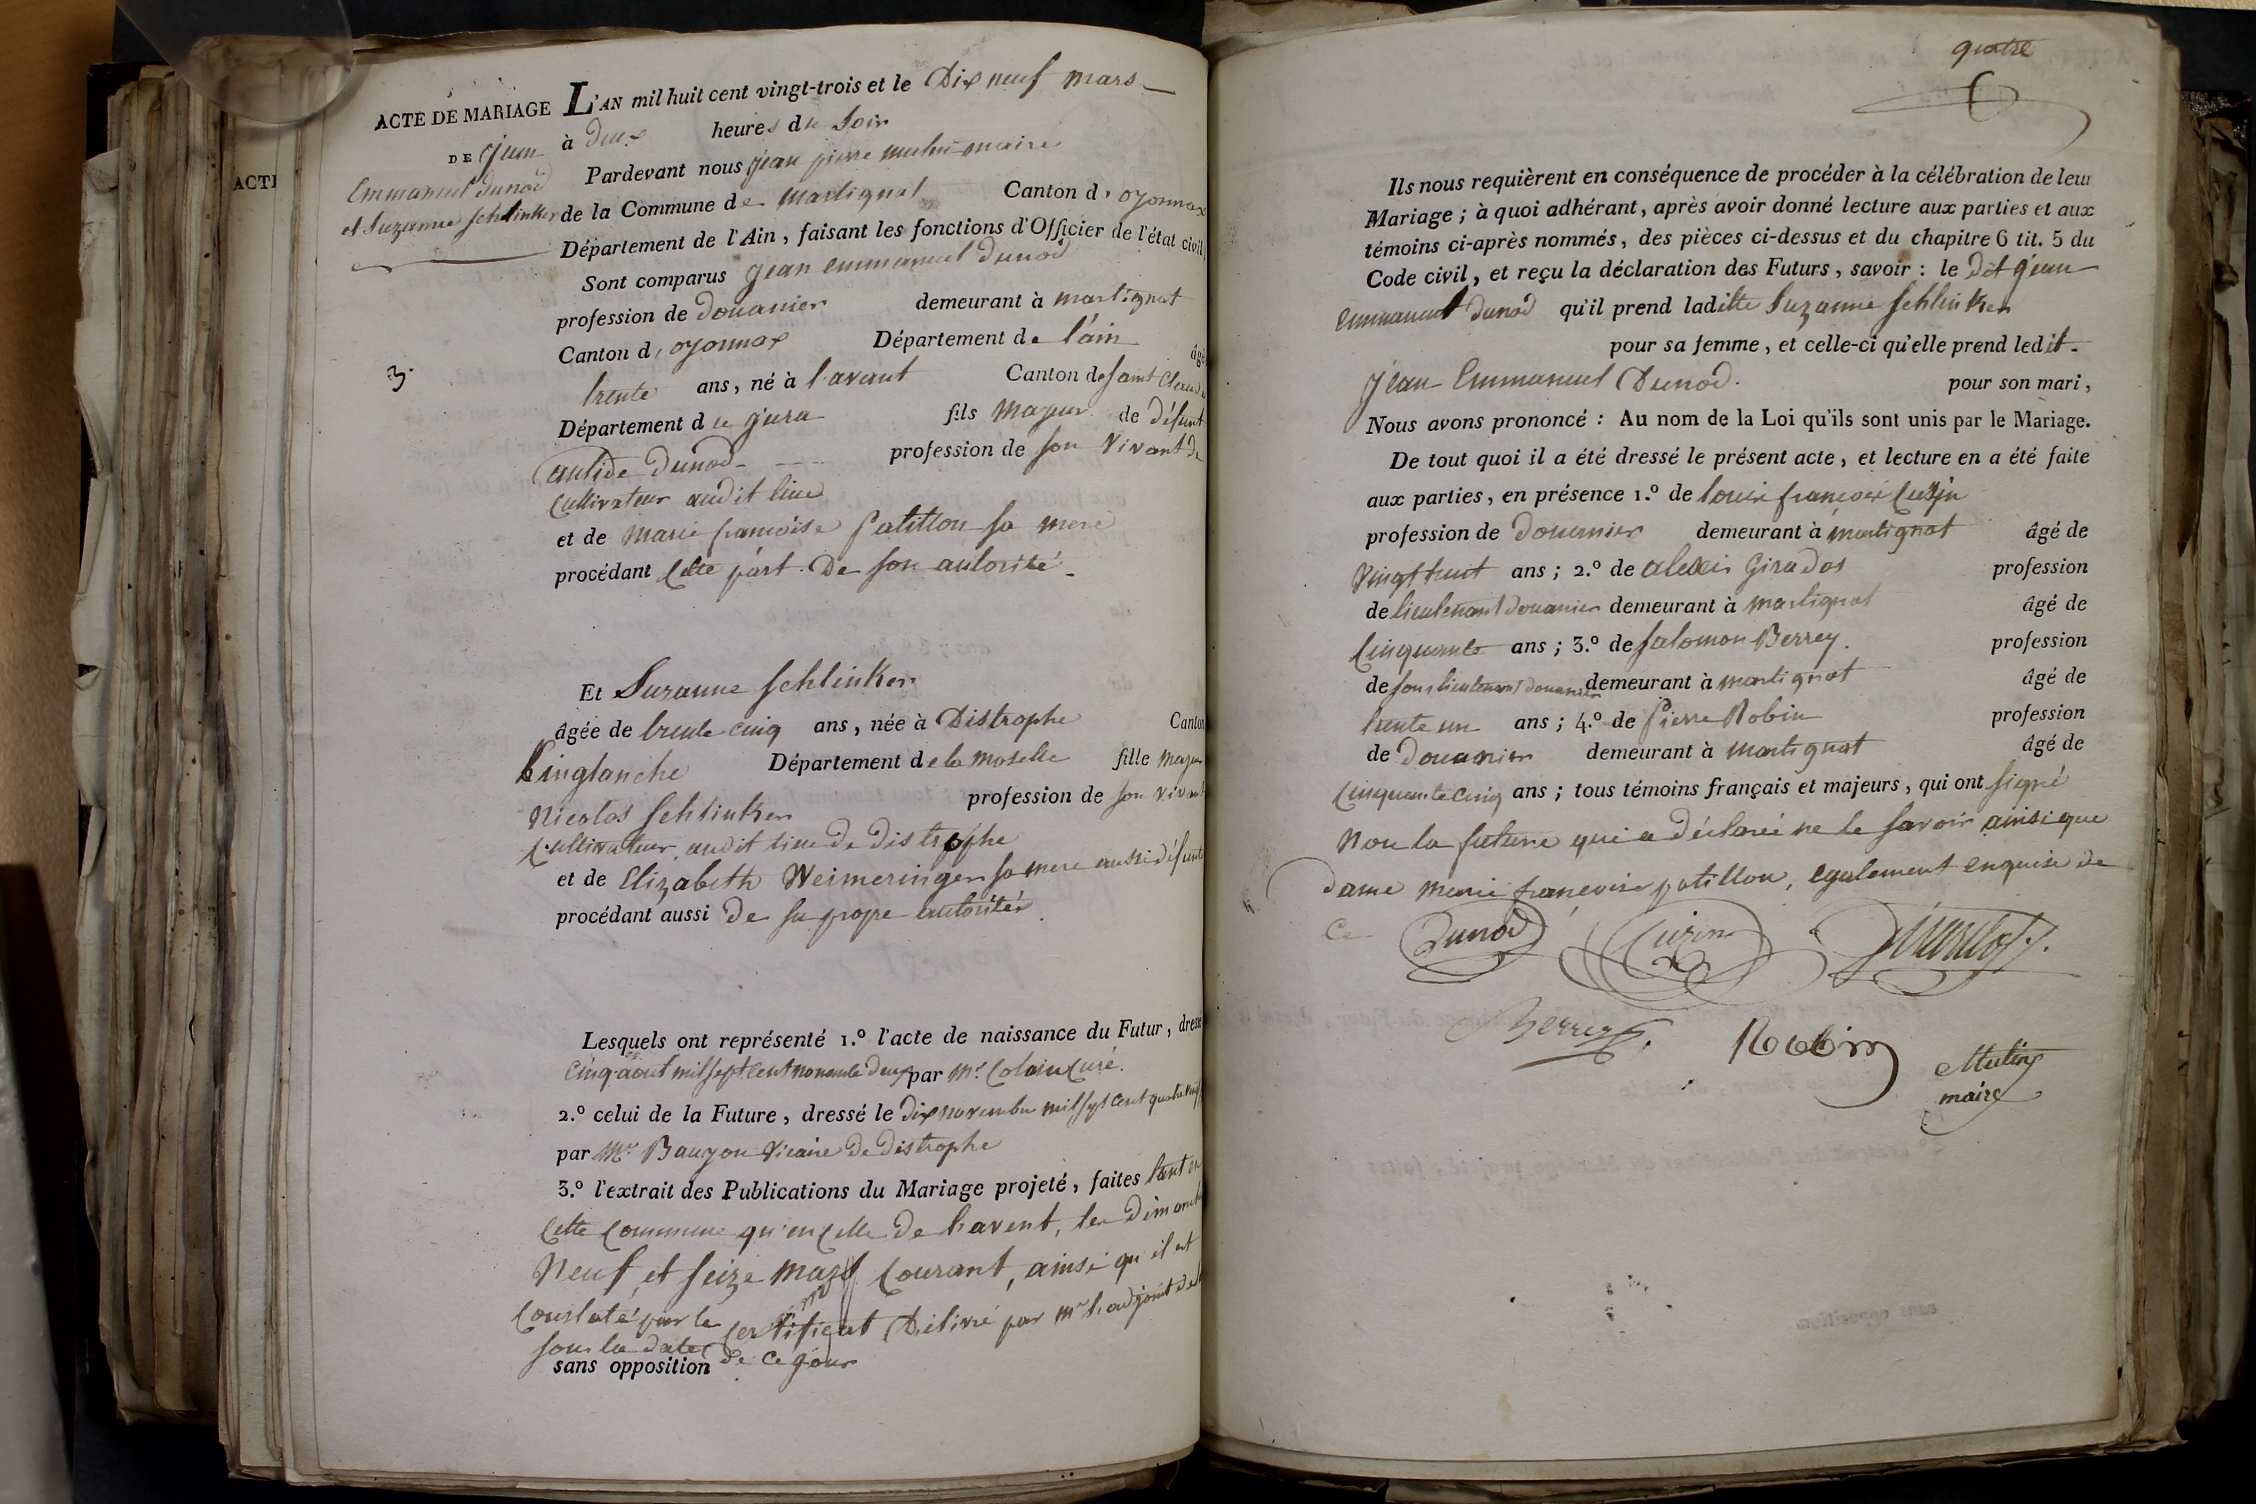 ACTI
ACTE DE MARIAGE
DE Jean
Emmanuel Dunod
et Suzanne Schlinker
3.
L'AN mil huit cent vingt-trois et le Dix neuf mars
à deux heures du Soir
Pardevant nous jean pierre mulin maire
de la Commune de Martignat Canton d'oyonnax
Département de l'Ain, faisant les fonctions d'Officier de l'état civil
Sont comparus Jean Emmanuel Dunod
profession de Douanier demeurant à martignat
Canton d'oyonnax Département de l'ain âgé
trente ans, né à lavant Canton de Saint Claude
Département du jura fils Majeur de Défunt
antide Dunod profession de son Vivant de
Cultivateur audit lieu
et de Marie francoise patillon sa mere
procédant Cette part De son autorité
Et Suzanne Schlinker
âgée de trente cinq ans, née à Distrophe Canton
Département de la Moselle fille Majeur
Nicolas Schlinker profession de son vivant
Cultivateur audit lieu de distrophe
et de Elizabeth Weimeringer sa mere aussi défunte
procédant aussi De sa propre autorité
Lesquels ont représenté 1.º l'acte de naissance du Futur, dressé
Cinq aout mil sept cent nonante deux par Mr. Colain Curé.
2.º celui de la Future, dressé le dix novembre mil sept cent quatre vingt
par Mr Bauzon Vicaire De Distrophe
3.º l'extrait des Publications du Mariage projeté, faites tant en
Cette Commune qu'en Celle De Lavent, les Dimanche
Neuf et Seize Mars Courant, ainsi qu'il est
Constaté par le Certificat Délivré par mr l'adjoint de
sous la date de ce jour
sans opposition
quatre
Ils nous requièrent en conséquence de procéder à la célébration de leur
Mariage ; à quoi adhérant, après avoir donné lecture aux parties et aux
témoins ci-après nommés, des pièces ci-dessus et du chapitre 6 tit. 5 du
Code civil, et reçu la déclaration des Futurs, savoir : le dit Jean
Emmanuel Dunod qu'il prend ladite Suzanne Schlinker
pour sa femme, et celle-ci qu'elle prend ledit
Jean Emmanuel Dunod. pour son mari,
Nous avons prononcé : Au nom de la Loi qu'ils sont unis par le Mariage.
De tout quoi il a été dressé le présent acte, et lecture en a été faite
aux parties, en présence 1.º de louis francois Cuzin
profession de Douanier demeurant à martignat âgé de
Vingt huit ans ; 2.º de alexis Girados profession
de lieutenant douanier demeurant à martignat âgé de
Cinquante ans ; 3.º de Salomon Berrey. profession
de sous lieutenant douanier demeurant à martignat âgé de
trente un ans ; 4.º de Pierre Robin profession
de Douanier demeurant à Martignat âgé de
Cinquante cinq ans ; tous témoins français et majeurs, qui ont signé
Non la future qui a déclaré ne le savoir ainsi que
Dame Marie francoise patillon, egalement enquise de
Ce Dunod Cuzin
Berrey Robin Mulin
maire